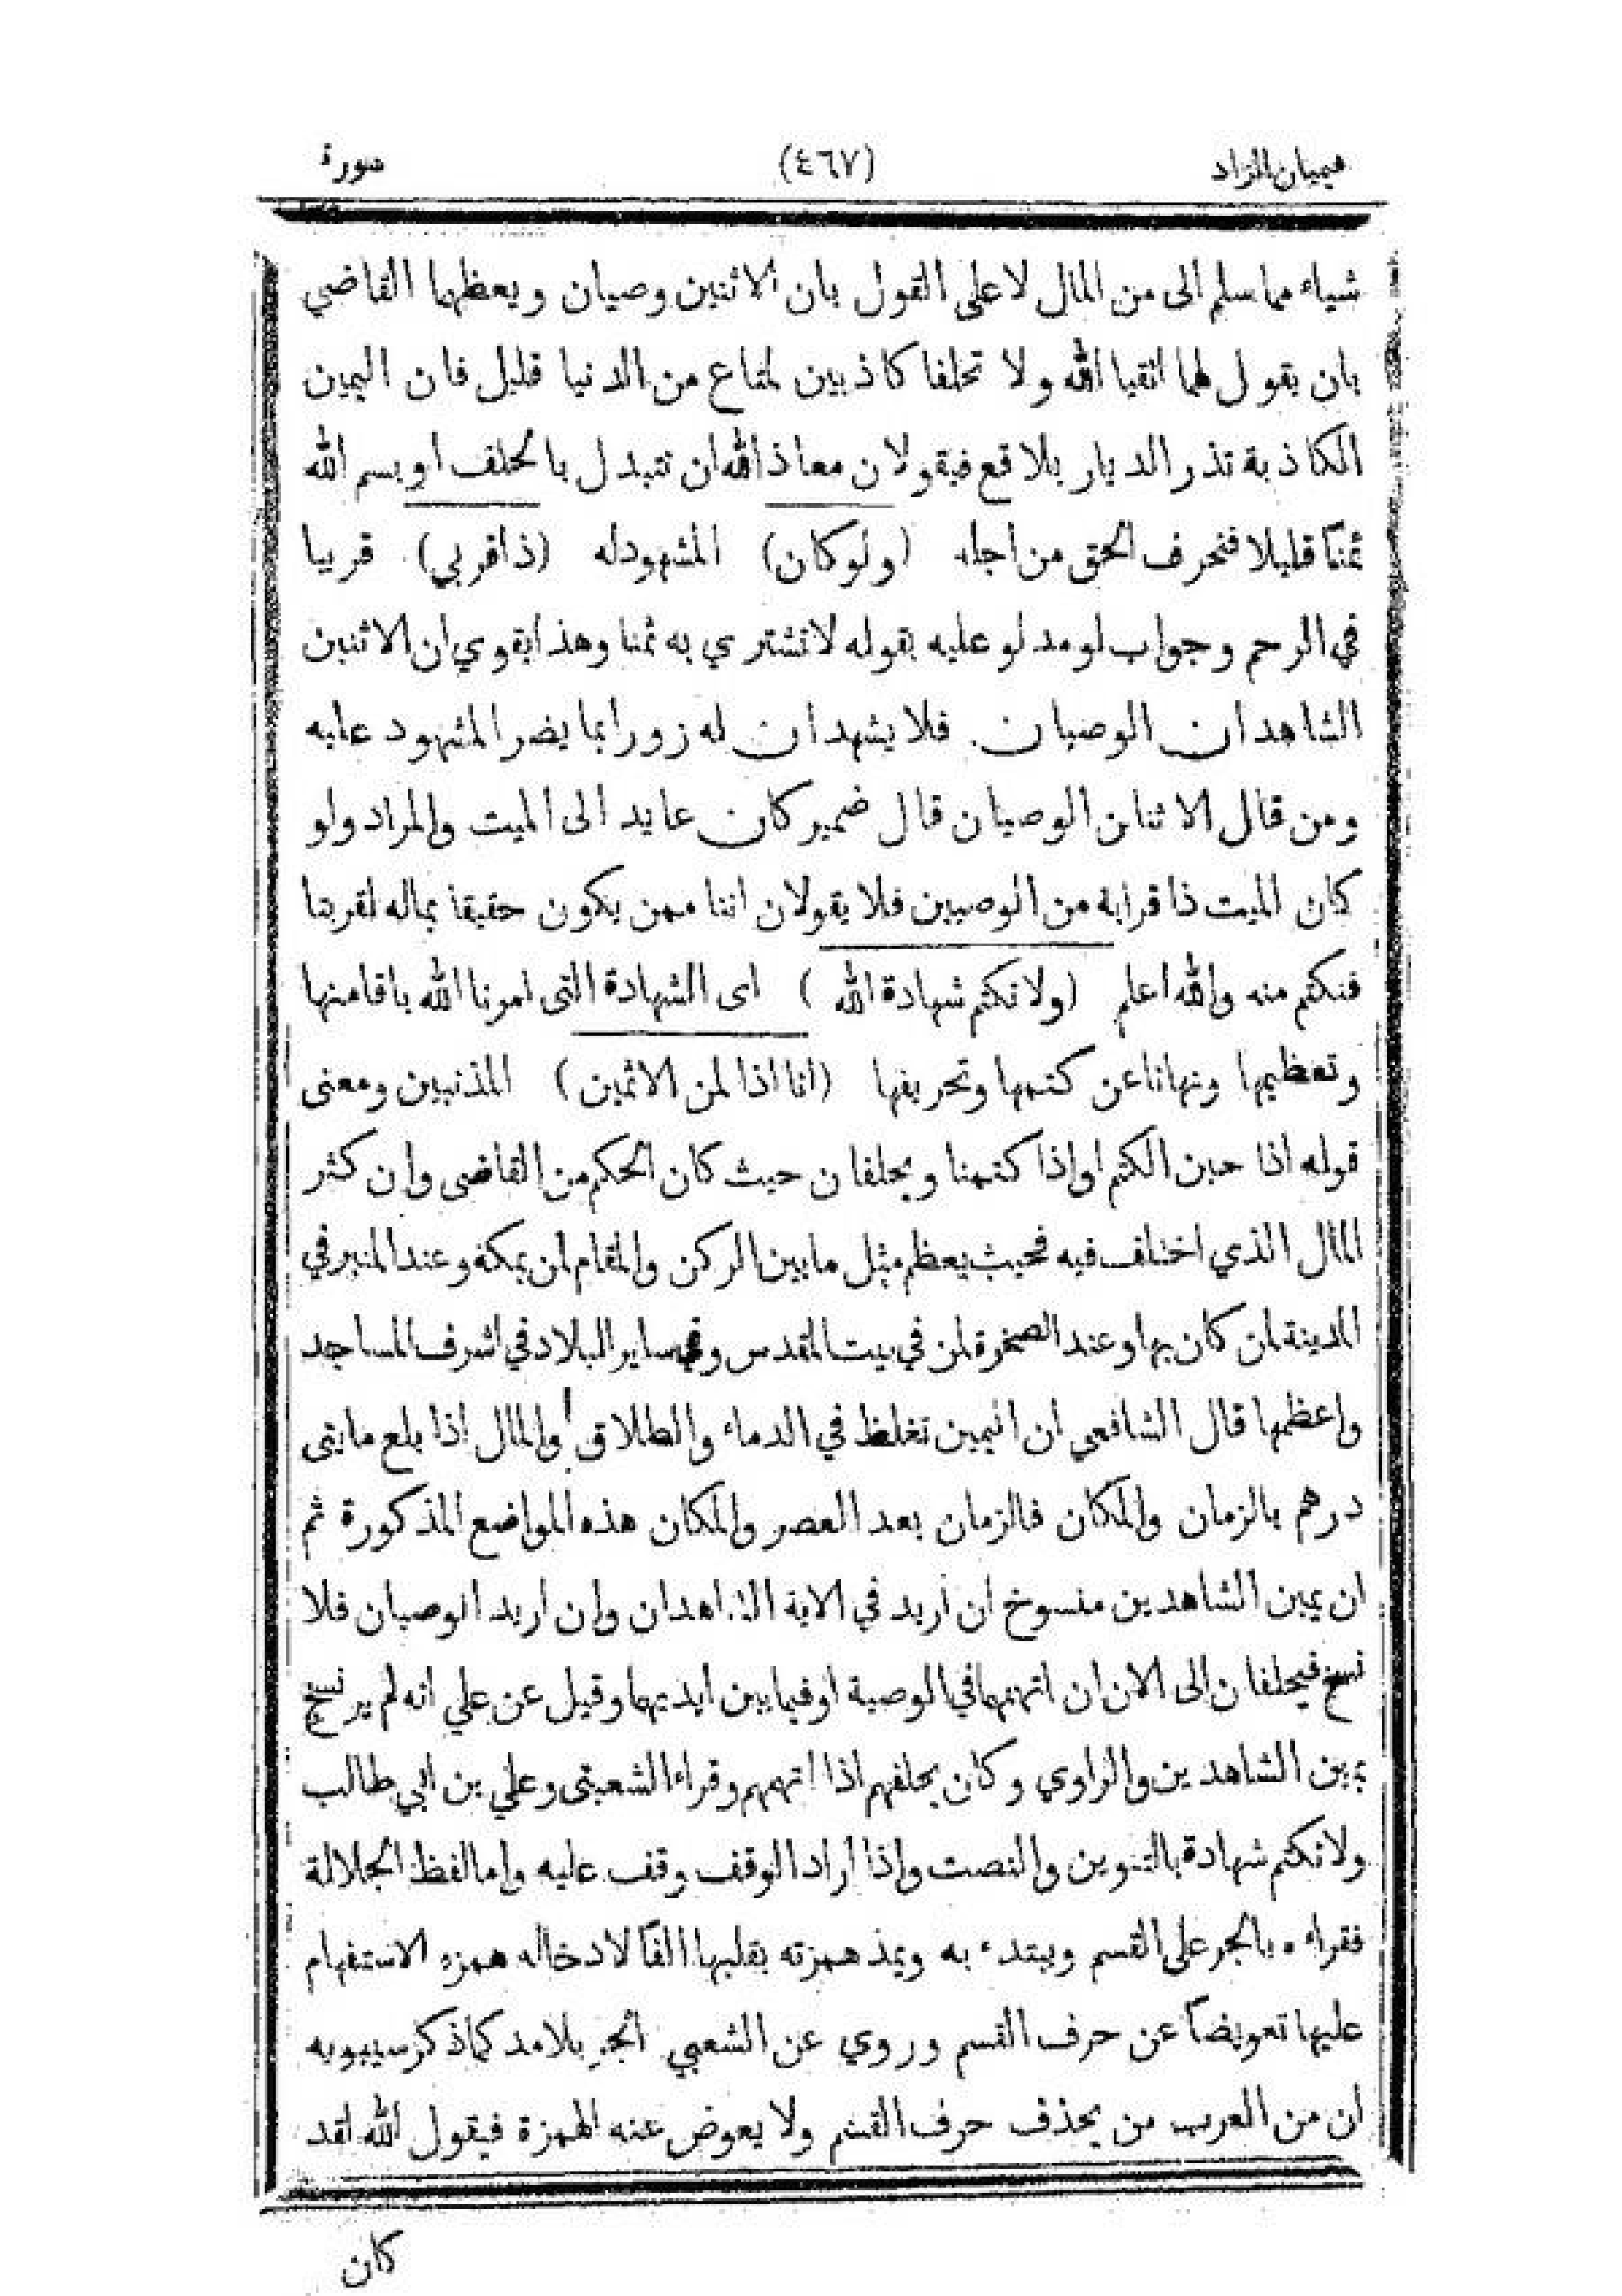 هيميان الزاد (٤٦٧) سورة
شياء مما سلم الى من المال لا على القول بان الاثنين وصيان ويعظهما القاضي
بان يقول لهما اتقيا الله ولا تحلفا كاذبين لمتاع من الدنيا قليل فان اليمين
الكاذبة تذر الديار بلاقع فيقولان معاذ الله ان نتبدل بالحلف او بسم الله
ثمنًا قليلا فنحرف الحق من اجله (ولو كان) المشهود له (ذا قربي) قريبا
في الرحم وجواب لو مدلو عليه بقوله لا نشتري به ثمنا وهذا يقوي ان الاثنين
الشاهدان الوصيان فلا يشهدان له زورا بما يضر المشهود عليه
ومن قال الاثنان الوصيان قال ضمير كان عايد الى الميت والمراد ولو
كان الميت ذا قرابة من الوصيين فلا يقولان اننا ممن يكون حقيقا بماله لقربنا
فنكتم منه والله اعلم (ولا نكتم شهادة الله) اى الشهادة التى امرنا الله باقامتها
وتعظيمها ونهانا عن كتمها وتحريفها (انا اذا لمن الاثمين) المذنبين ومعنى
قوله اذا حين الكتم او اذا كتمنا ويحلفان حيث كان الحكم من القاضى وان كثر
المال الذي اختلف فيه فحيث يعظم مثل ما بين الركن والمقام لمن بمكة وعند المنبر في
المدينة لمن كان بها وعند الصخرة لمن في بيت المقدس وفي ساير البلاد في اشرف المساجد
واعظمها قال الشافعي ان اليمين تغلظ في الدماء والطلاق والمال اذا بلع مايتى
درهم بالزمان والمكان فالزمان بعد العصر والمكان هذه المواضع المذكورة ثم
ان يمين الشاهدين منسوخ ان اريد في الاية الشاهدان وان اريد الوصيان فلا
نسخ فيحلفان الى الان ان اتهمهما في الوصية او فيما بين ايديهما وقيل عن علي انه لم ير نسخ
يمين الشاهدين والراوي وكان يحلفهم اذا اتهمهم وقراء الشعبتى وعلي بن ابي طالب
ولا نكتم شهادة بالتنوين والنصت واذا اراد الوقف وقف عليه واما لفظ الجلالة
فقراءه بالجر على القسم ويبتدء به ويمذ همزته بقلبها الفًا لادخاله همزه الاستفهام
عليها تعويضًا عن حرف القسم وروي عن الشعبي الجر بلا مد كما ذكر سيبويه
ان من العرب من يحذف حرف القسم ولا يعوض عنه الهمزة فيقول الله لقد
كان